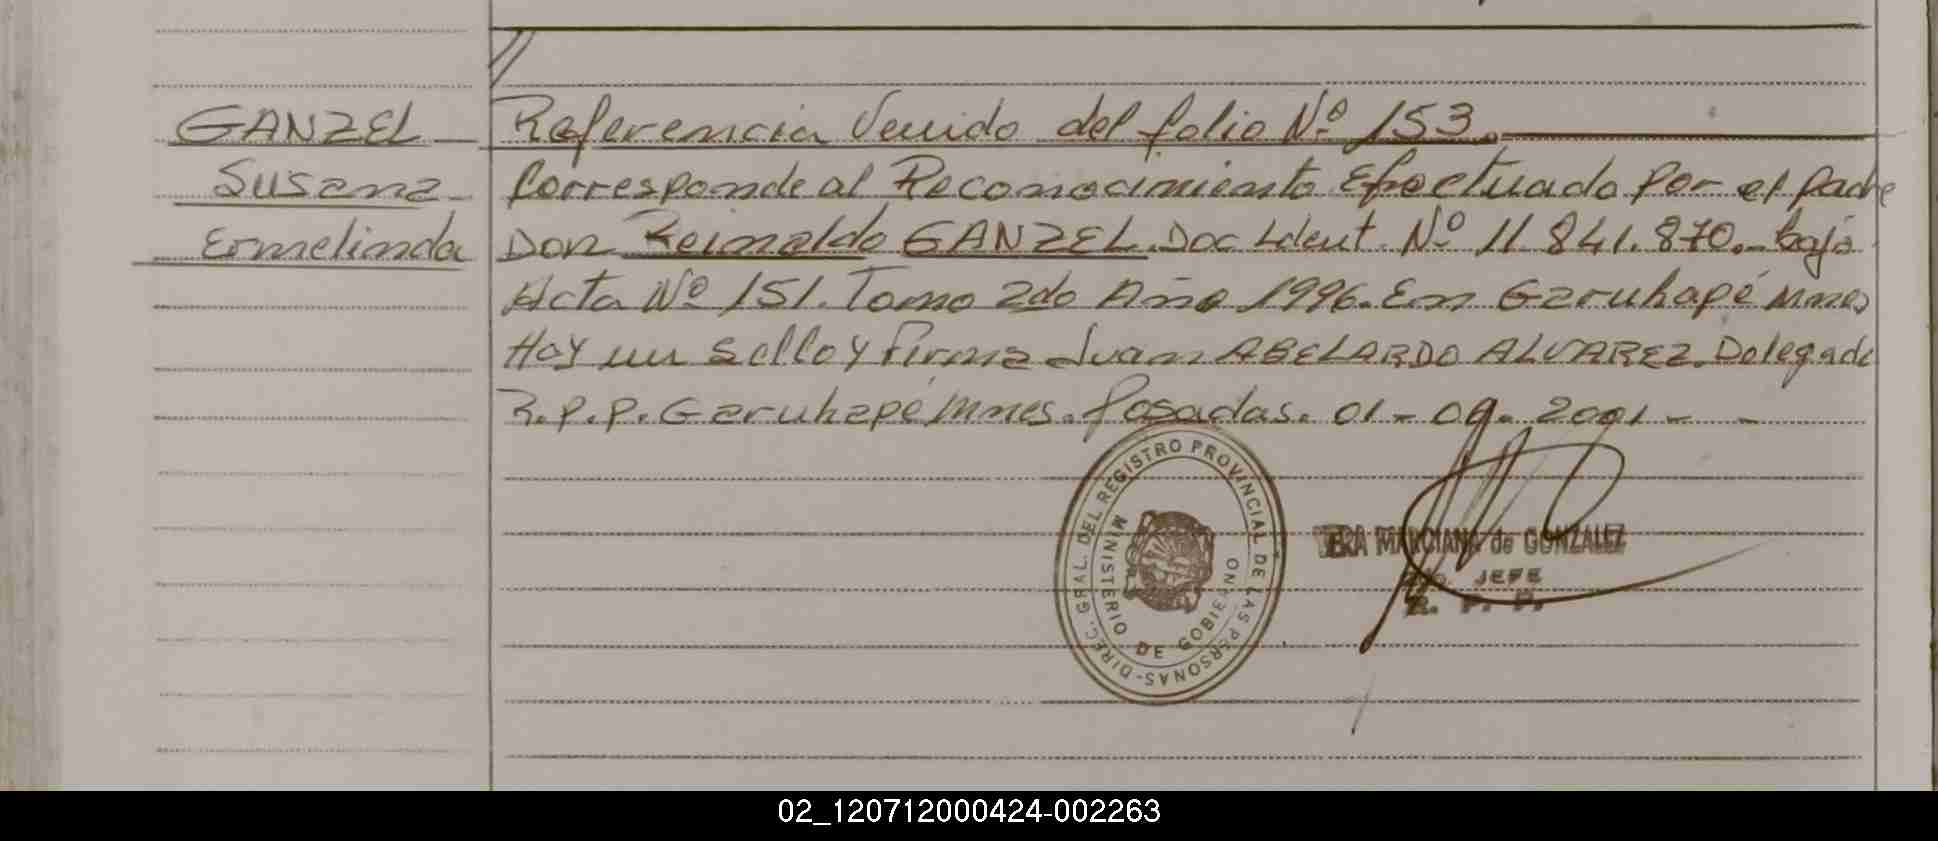 GANZEL
Susana
Ermelinda
Referencia Venido del folio Nº 153.
Corresponde al Reconocimiento Efectuado Por el Padre
Don Reinaldo GANZEL. Doc Ident. Nº 11.841.870.- bajo
Acta Nº 151. Tomo 2do Año 1996. En Garuhapé Mnes
Hay un Sello y Firma Juan ABELARDO ALVAREZ. Delegado
R.P.P. Garuhapé Mnes. Posadas. 01-09-2001-
DIREC. GRAL. DEL REGISTRO PROVINCIAL DE LAS PERSONAS-
MINISTERIO DE GOBIERNO
MARCIANA de GONZALEZ
JEFE
R. P. P.
02_120712000424-002263